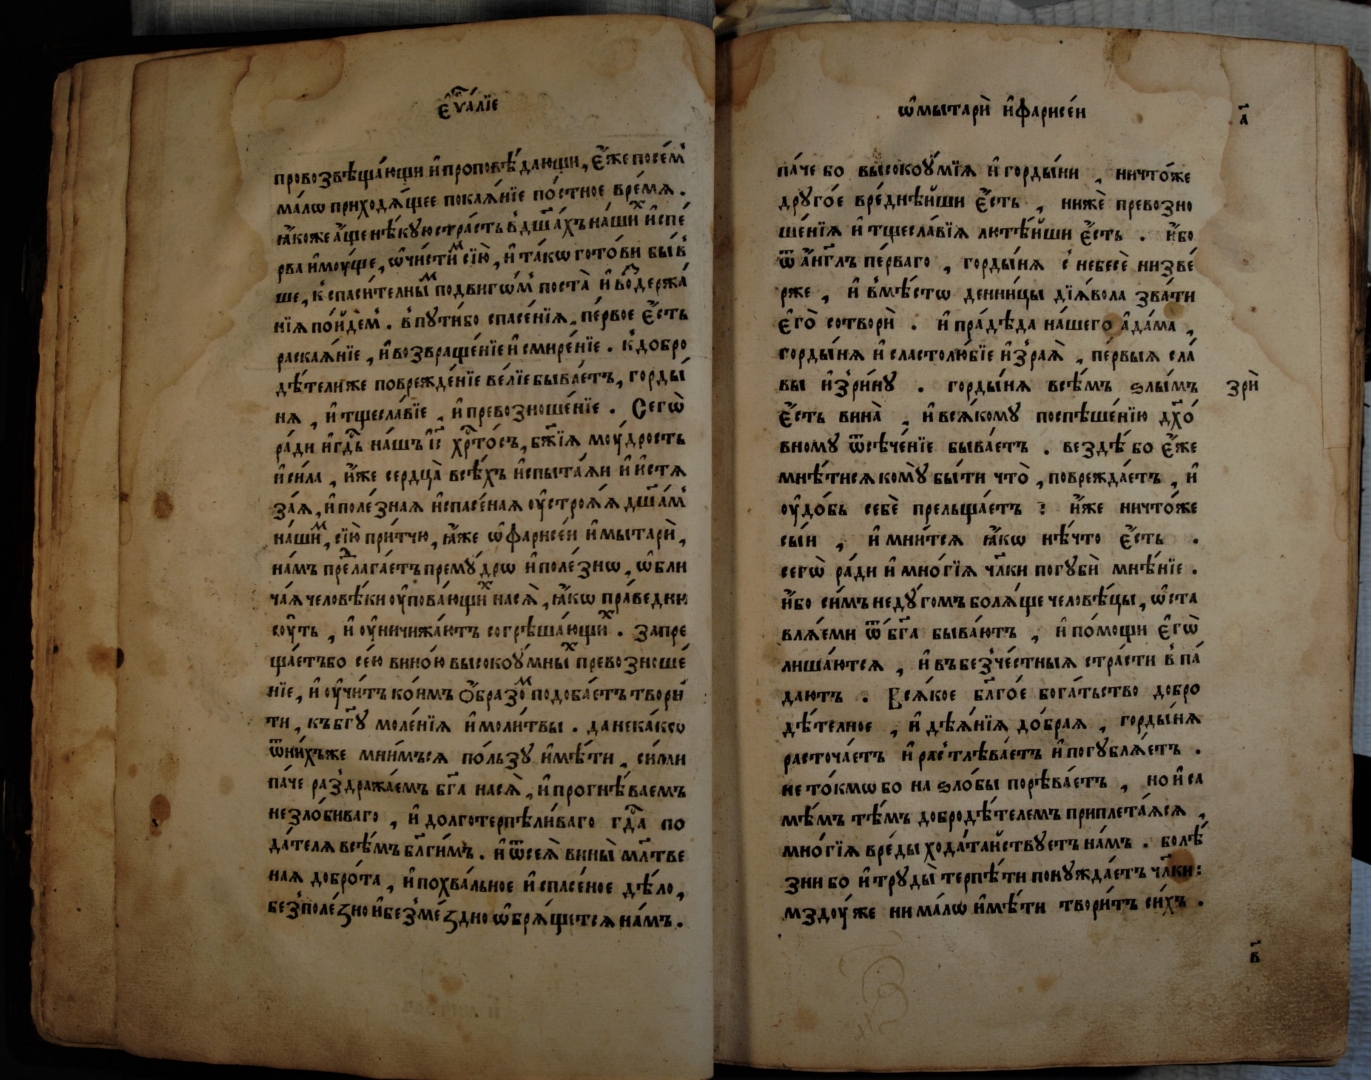 є҆ѵⷢ҇а́лїе
провозвѣща́ющи и҆проповѣ́дающи, є҆́же посе́мъ
ма́лѡ приходѧ́щее покаѧ́нїе по́стное вре́мѧ.
ꙗ҆́коже а҆́ще нѣ́кую стра́сть в̾дш҃а́хъ на́шиⷯ и҆спе́
рва и҆мꙋ́ще, ѡ҆чи́стиⷨ сїю̀, и҆ та́кѡ гото́ви бы́в̾
ше, к̾ спаси́телныⷨ по́двигѡм̾ поста̀ и҆ воⷥдержа́
нїѧ по́йдем̾. в̾пути́бо спасе́нїѧ, пе́рвое є҆́сть
раскаѧ́нїе, и҆ возвраще́нїе и҆ смире́нїе. к̾добро
дѣ́тели́же поврежде́нїе ве́лїе быва́етъ, горды́
нѧ, и҆ тщесла́вїе, и҆ превозноше́нїе. Сегѡ̀
ра́ди и҆ гдⷭ҇ь на́шъ і҆с҃ хрⷭ҇то́съ, бж҃їѧ моу́дрость
и҆ си́ла, и҆́же сердца̀ всѣ́хъ и҆спыта́ѧи и҆ и҆стѧ
за́ѧ, и҆ поле́знаѧ и҆спасе́наѧ оу҆строѧ́ѧ дш҃а́м̾
на́шиⷨ, сїю̀ при́тчю, ꙗ҆́же ѡ҆ фарисе́и и҆ мытарѝ,
на́мъ преⷣлага́етъ прему́дрѡ и҆ поле́знѡ, ѡ҆бли
ча́ѧ человѣ́ки оу҆пова́ющиⷯ насѧ̀, ꙗ҆́кѡ пра́ведни
соу́ть, и҆ оу҆ничижа́ютъ согрѣша́ющиⷯ. запре
ща́етъбо се́ю вино́ю высокоу́мныⷯ превозноше́
нїе, и҆ оу҆чи́тъ ко́имъ ѻ҆́бразоⷨ подоба́етъ твори́
ти, къ бг҃у моле́нїѧ и҆ моли́твы. да не ка́ксо
ѿни́хъже мни́мъсѧ по́льзу и҆мѣ́ти, си́ми
па́че раздража́емъ бг҃а насѧ̀, и҆ прогнѣ́ваемъ
незло́биваго, и҆ долготерпѣли́ваго гдⷭ҇а по
да́телѧ всѣ́мъ бл҃ги́мъ. и҆ ѿсеѧ̀ вины̀ мл҃тве
наѧ доброта̀, и҆ похва́льное и҆ спасе́ное дѣ́ло,
без̾поле́зно и҆без̾ме́здно ѡ҆брѧ́щетсѧ на́мъ.
ѡ҆мытарѝ и҆фарисе́и
а҃
па́че бо высокоу́мїѧ и҆ горды́ни, ничто́же
друго́е вредне́йши є҆́сть, нижѐ превозно
ше́нїѧ и҆ тщесла́вїѧ лютѣ́йши є҆́сть. и҆́бо
ѿ а҆́нгл҃ъ пе́рваго, горды́нѧ с̾ небесѐ низве́
рже, и҆ в̾мѣ́стѡ денни́цы дїѧ́вола зва́ти
є҆го̀ сотворѝ. и҆ пра́дѣда на́шего а҆да́ма,
горды́нѧ и҆ сластолю́бїе и҆з̾раѧ̀, пе́рвыѧ сла́
вы и҆з̾ри́ну. горды́нѧ всѣ́мъ ѕлы́мъ
зрѝ
є҆́сть вина̀, и҆ всѧ́кому поспѣше́нїю дх҃о́
вному ѿсѣче́нїе быва́етъ. вездѣ́ бо є҆́же
мнѣ́тисѧ кому̀ бы́ти что̀, поврежда́етъ, и҆
оу҆до́бь себѐ прельща́етъ: и҆́же ничто́же
сы́и, и҆ мни́тсѧ ꙗ҆́кѡ нѣ́что є҆́сть.
сегѡ̀ ра́ди и҆ мно́гїѧ чл҃ки погубѝ мнѣ́нїе.
и҆́бо си́мъ неду́гомъ болѧ́ще человѣ́цы, ѡ҆ста
влѧ́еми ѿ бг҃а быва́ютъ, и҆ по́мощи є҆гѡ̀
лиша́ютсѧ, и҆ въ без̾че́стныѧ стра́сти в̾па́
даютъ. Всѧ́кое бл҃го́е бога́тьство добро
дѣ́телное, и҆ дѣѧ́нїѧ до́браѧ, горды́нѧ
расточа́етъ и҆ рас̾тлѣва́етъ и҆ погублѧ́етъ.
не то́кмѡ бо на ѕло́бы порѣва́етъ, но и҆ са
мѣ́мъ тѣ́мъ добродѣ́телемъ приплета́ѧсѧ,
мно́гїѧ вре́ды хода́тайствуетъ на́мъ. болѣ́
зни бо и҆ труды̀ терпѣ́ти понужда́етъ чл҃ки:
мздоу́ же ни ма́лѡ и҆мѣ́ти твори́тъ си́хъ.
в҃